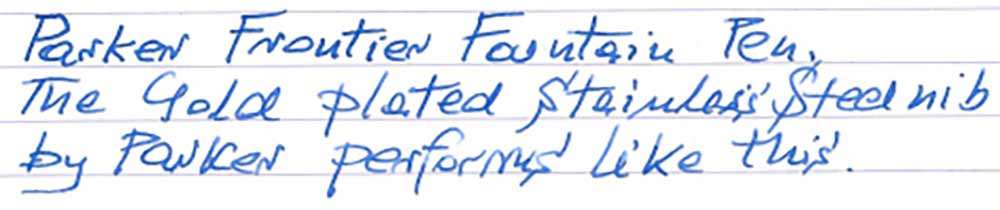 Parker Frontier Fountain Pen,
The Gold plated Stainless Steel nib
by Parker performs like this.